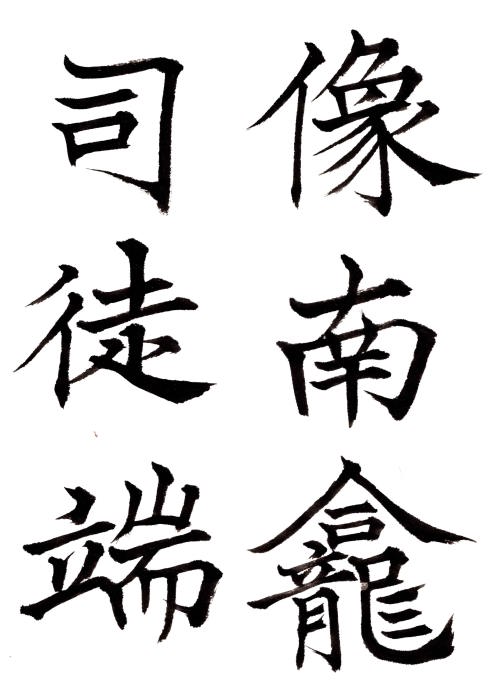 像南龕
司徒端